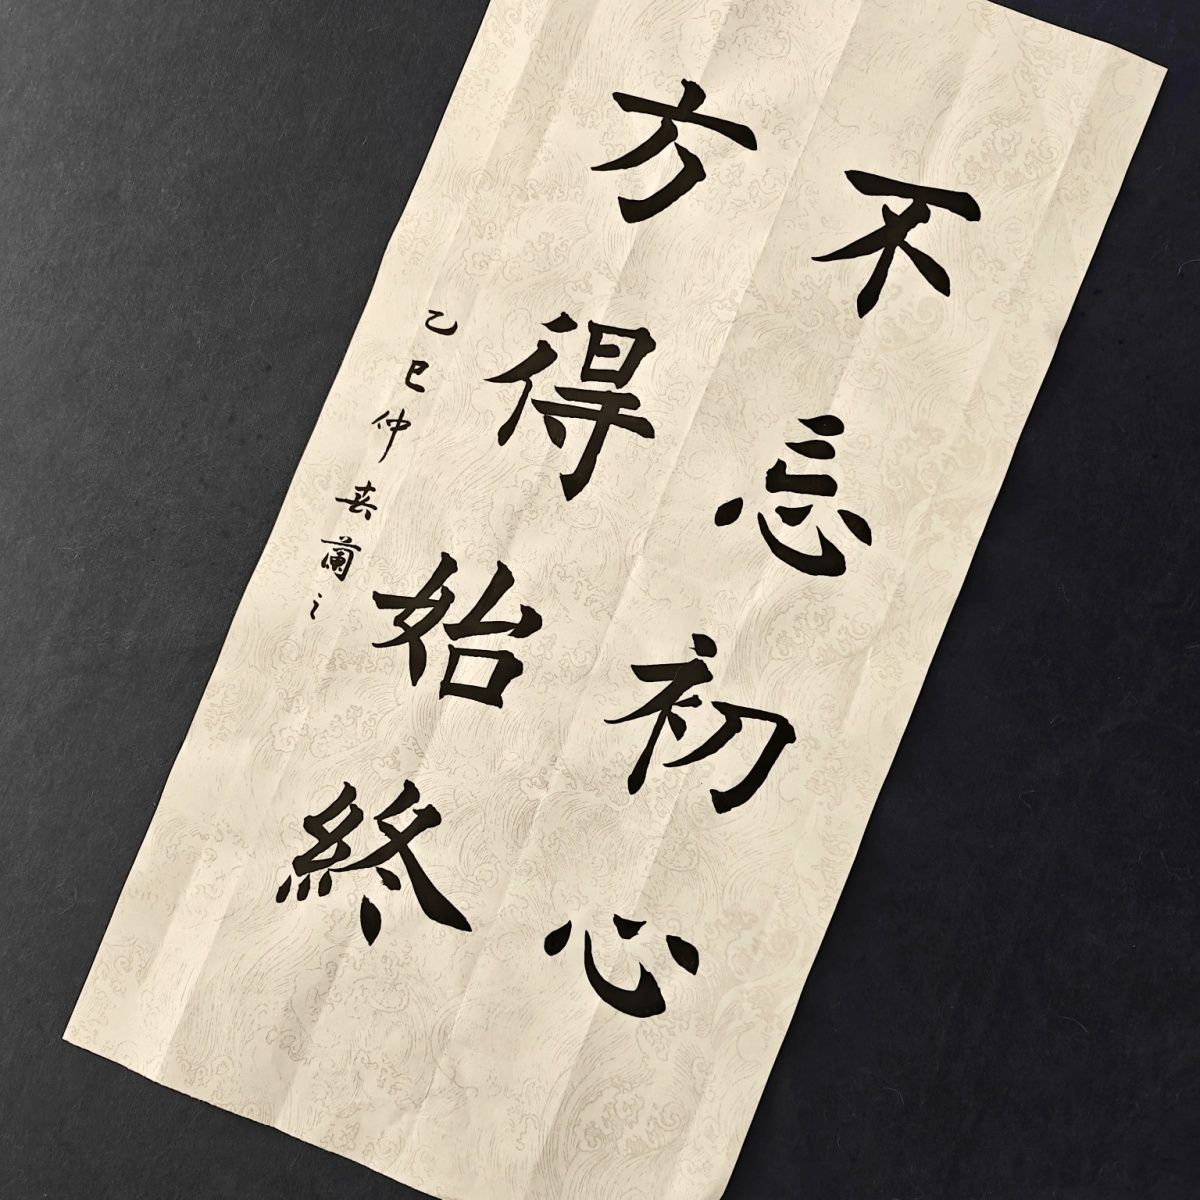 不忘初心
方得始終
乙巳仲春蘭之